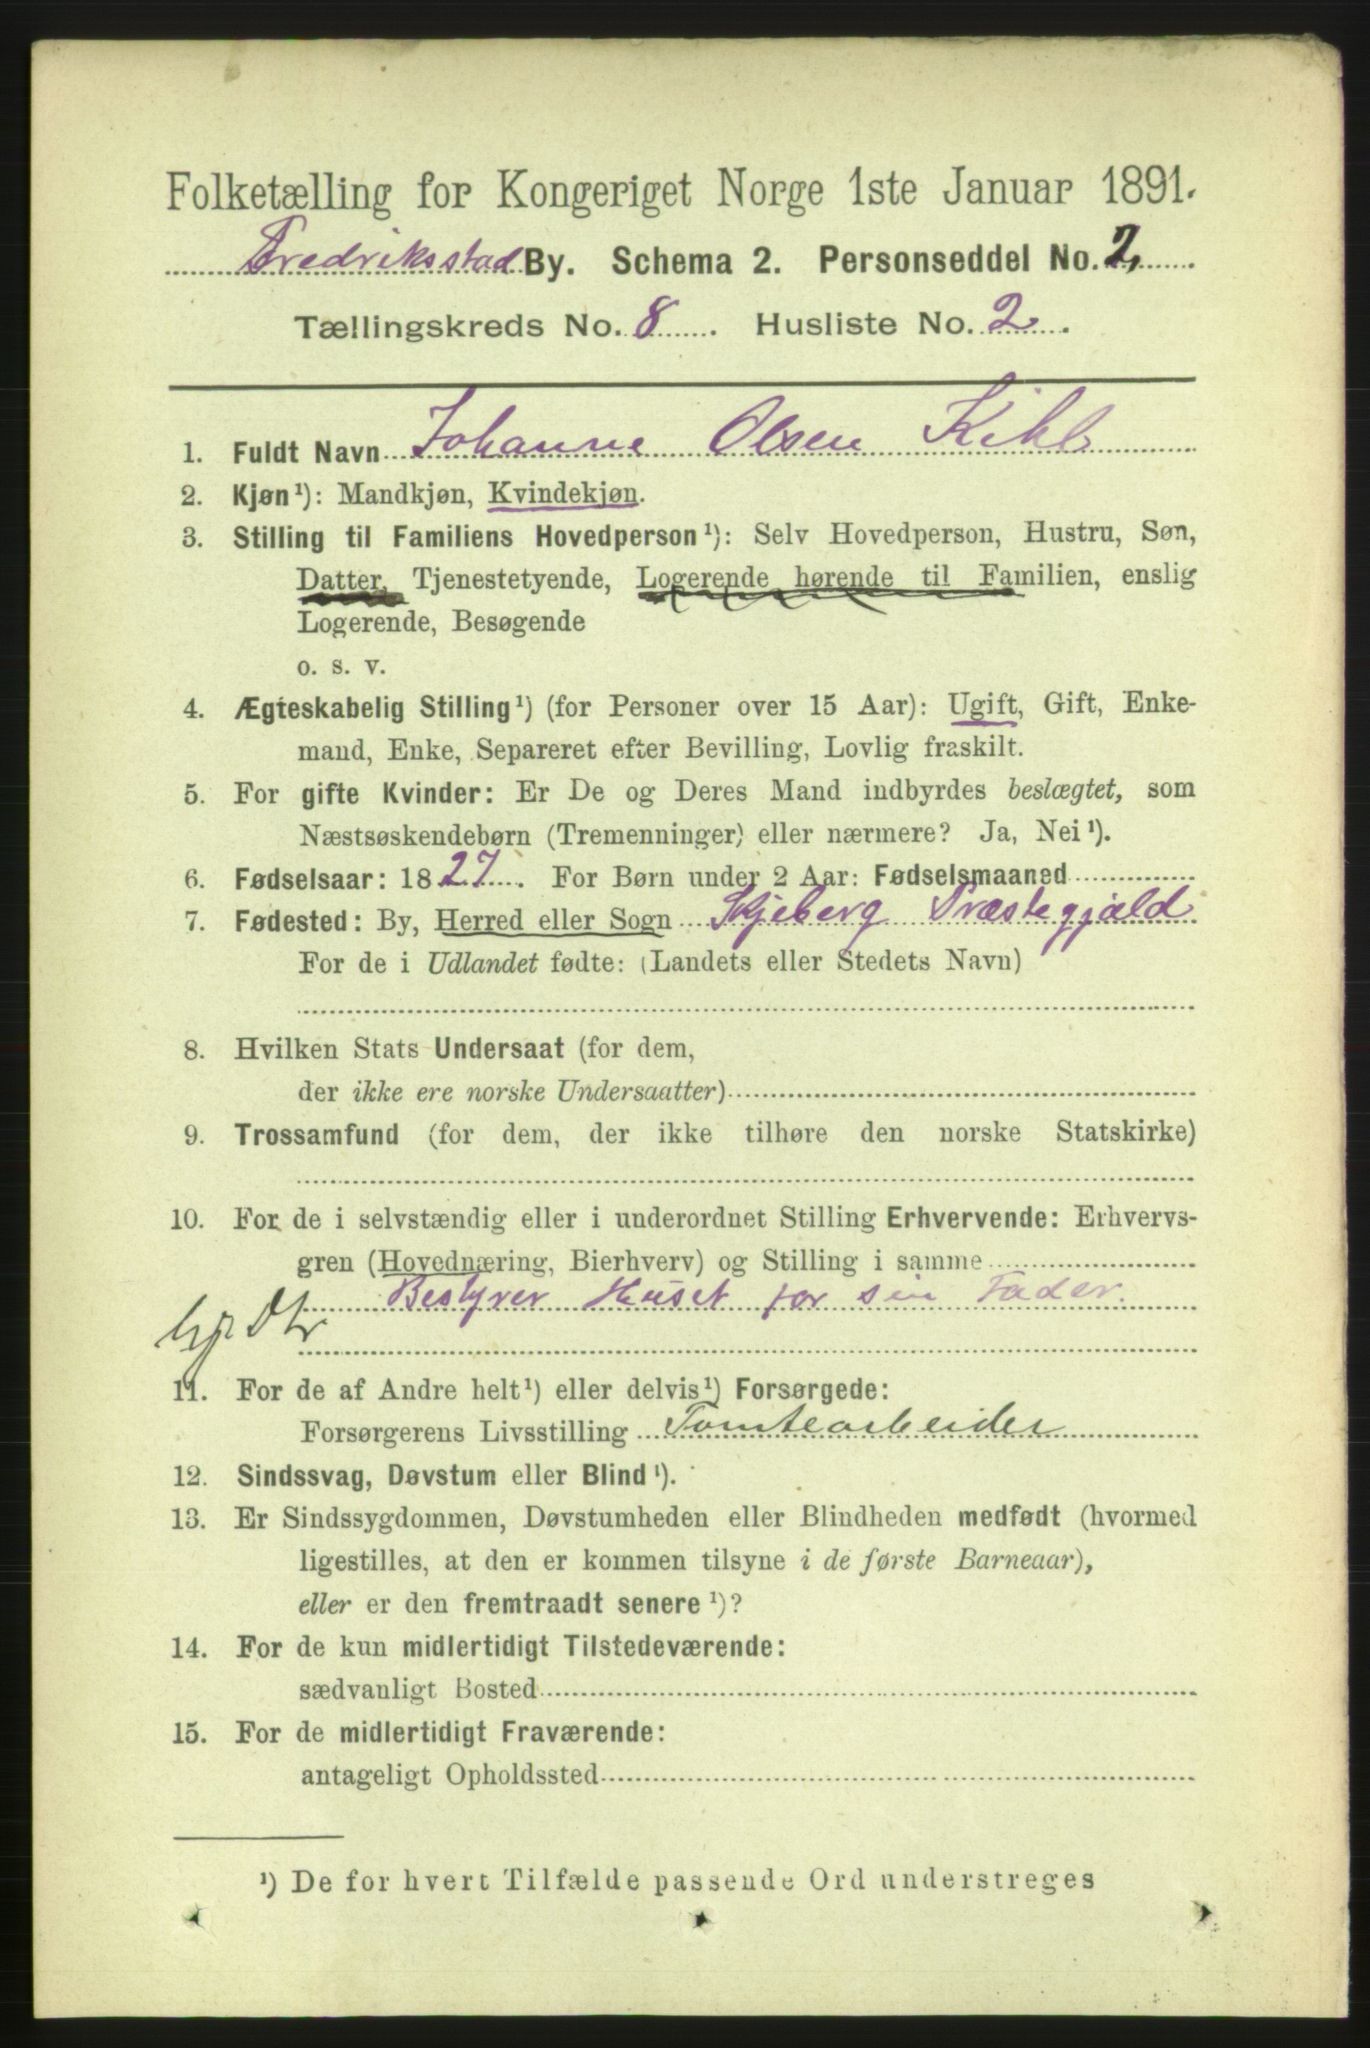 Folketælling for Kongeriget Norge 1ste Januar 1891.
Fredriksstad By. Schema 2. Personseddel No. 2,
Tællingskreds No. 8. Husliste No. 2.
1. Fuldt Navn Johanne Olsen Kihl
2. Kjøn¹): Mandkjøn, Kvindekjøn.
3. Stilling til Familiens Hovedperson¹): Selv Hovedperson, Hustru, Søn,
Datter, Tjenestetyende, Logerende hørende til Familien, enslig
Logerende, Besøgende
o. s. v.
4. Ægteskabelig Stilling¹) (for Personer over 15 Aar): Ugift, Gift, Enke-
mand, Enke, Separeret efter Bevilling, Lovlig fraskilt.
5. For gifte Kvinder: Er De og Deres Mand indbyrdes beslægtet, som
Næstsøskendebørn (Tremenninger) eller nærmere? Ja, Nei¹).
6. Fødselsaar: 1827. For Børn under 2 Aar: Fødselsmaaned
7. Fødested: By, Herred eller Sogn Skjeberg Præstegjæld
For de i Udlandet fødte: (Landets eller Stedets Navn)
8. Hvilken Stats Undersaat (for dem,
der ikke ere norske Undersaatter)
9. Trossamfund (for dem, der ikke tilhøre den norske Statskirke)
10. For de i selvstændig eller i underordnet Stilling Erhvervende: Erhvervs-
gren (Hovednæring, Bierhverv) og Stilling i samme
Bestyrer Huset for sin Fader.
11. For de af Andre helt¹) eller delvis¹) Forsørgede:
Forsørgerens Livsstilling Tomtearbeider
12. Sindssvag, Døvstum eller Blind¹).
13. Er Sindssygdommen, Døvstumheden eller Blindheden medfødt (hvormed
ligestilles, at den er kommen tilsyne i de første Barneaar),
eller er den fremtraadt senere¹)?
14. For de kun midlertidigt Tilstedeværende:
sædvanligt Bosted
15. For de midlertidigt Fraværende:
antageligt Opholdssted
¹) De for hvert Tilfælde passende Ord understreges